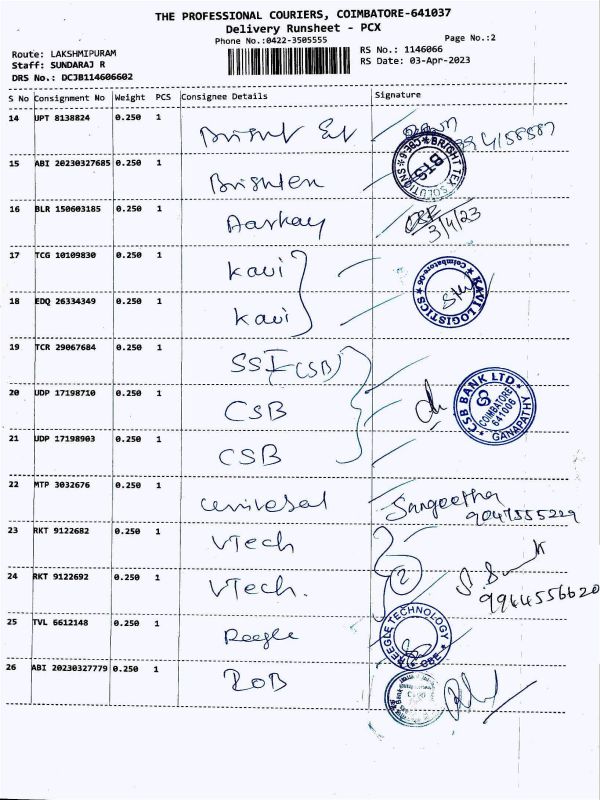 THE PROFESSIONAL COURIERS, COIMBATORE-641037
Delivery Runsheet - PCX
Phone No.:0422-3505555
Page No.:2
Route: LAKSHMIPURAM
Staff: SUNDARAJ R
DRS No.: DCJB114606602
RS No.: 1146066
RS Date: 03-Apr-2023
S No Consignment No Weight PCS Consignee Details Signature
14 UPT 8138824 0.250 1
15 ABI 20230327685 0.250 1 Brighten
BRIGHT TEX SOLUTIONS
BTS
16 BLR 150603185 0.250 1 Aarkay
3/4/23
17 TCG 10109830 0.250 1 Kavi
KAVI LOGISTICS
Coimbatore-06
18 EDQ 26334349 0.250 1 Kavi
19 TCR 29067684 0.250 1 SSI (CSB)
20 UDP 17198710 0.250 1 CSB
CSB BANK LTD
COIMBATORE
641006
GANAPATHY
21 UDP 17198903 0.250 1 CSB
22 MTP 3032676 0.250 1 Universal Sangeetha
23 RKT 9122682 0.250 1 VTech
2
24 RKT 9122692 0.250 1 VTech.
9944556620
25 TVL 6612148 0.250 1 Reegle
REEGLE TECHNOLOGY
CBE
26 ABI 20230327779 0.250 1 BOB